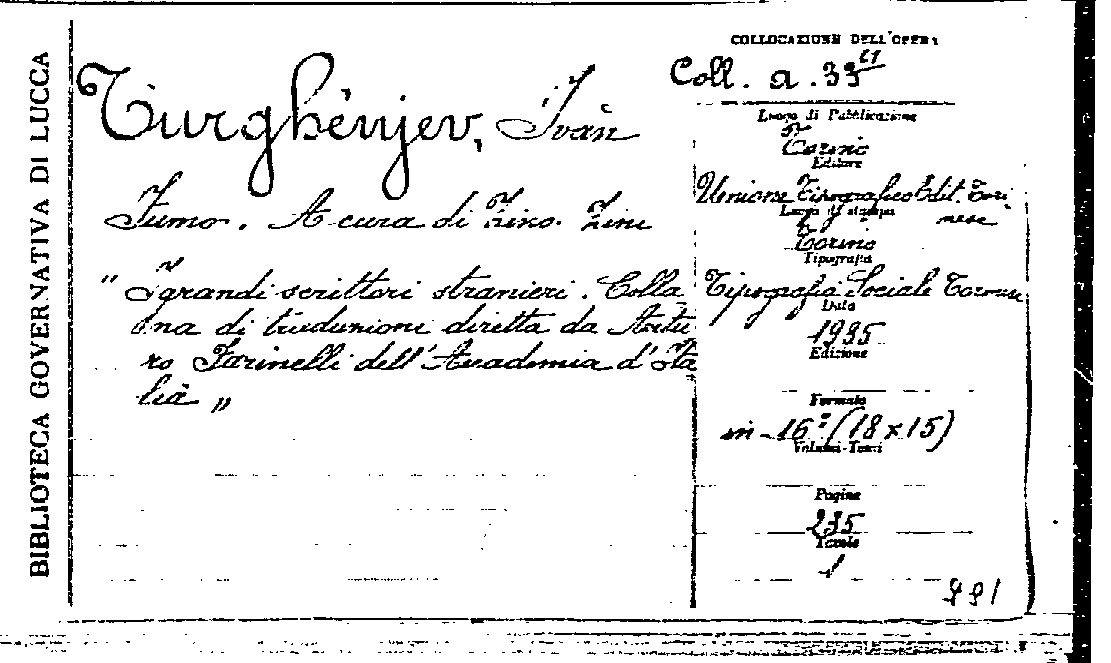 BIBLIOTECA GOVERNATIVA DI LUCCA
Turghènjev, Ivàn
Fumo. A cura di Zino Zini
" I grandi scrittori stranieri. Colla
na di traduzioni diretta da Artu
ro Farinelli dell'Accademia d'Ita
lia "
COLLOCAZIONE DELL'OPERA
Coll. a. 33
Luogo di Pubblicazione
Torino
Editore
Unione Tipografico Edit. Tori
nese
Luogo di stampa
Torino
Tipografia
Tipografia Sociale Torinese
Data
1935
Edizione
Formato
in-16° (18 x 15)
Volumi-Tomi
Pagine
235
Tavole
1